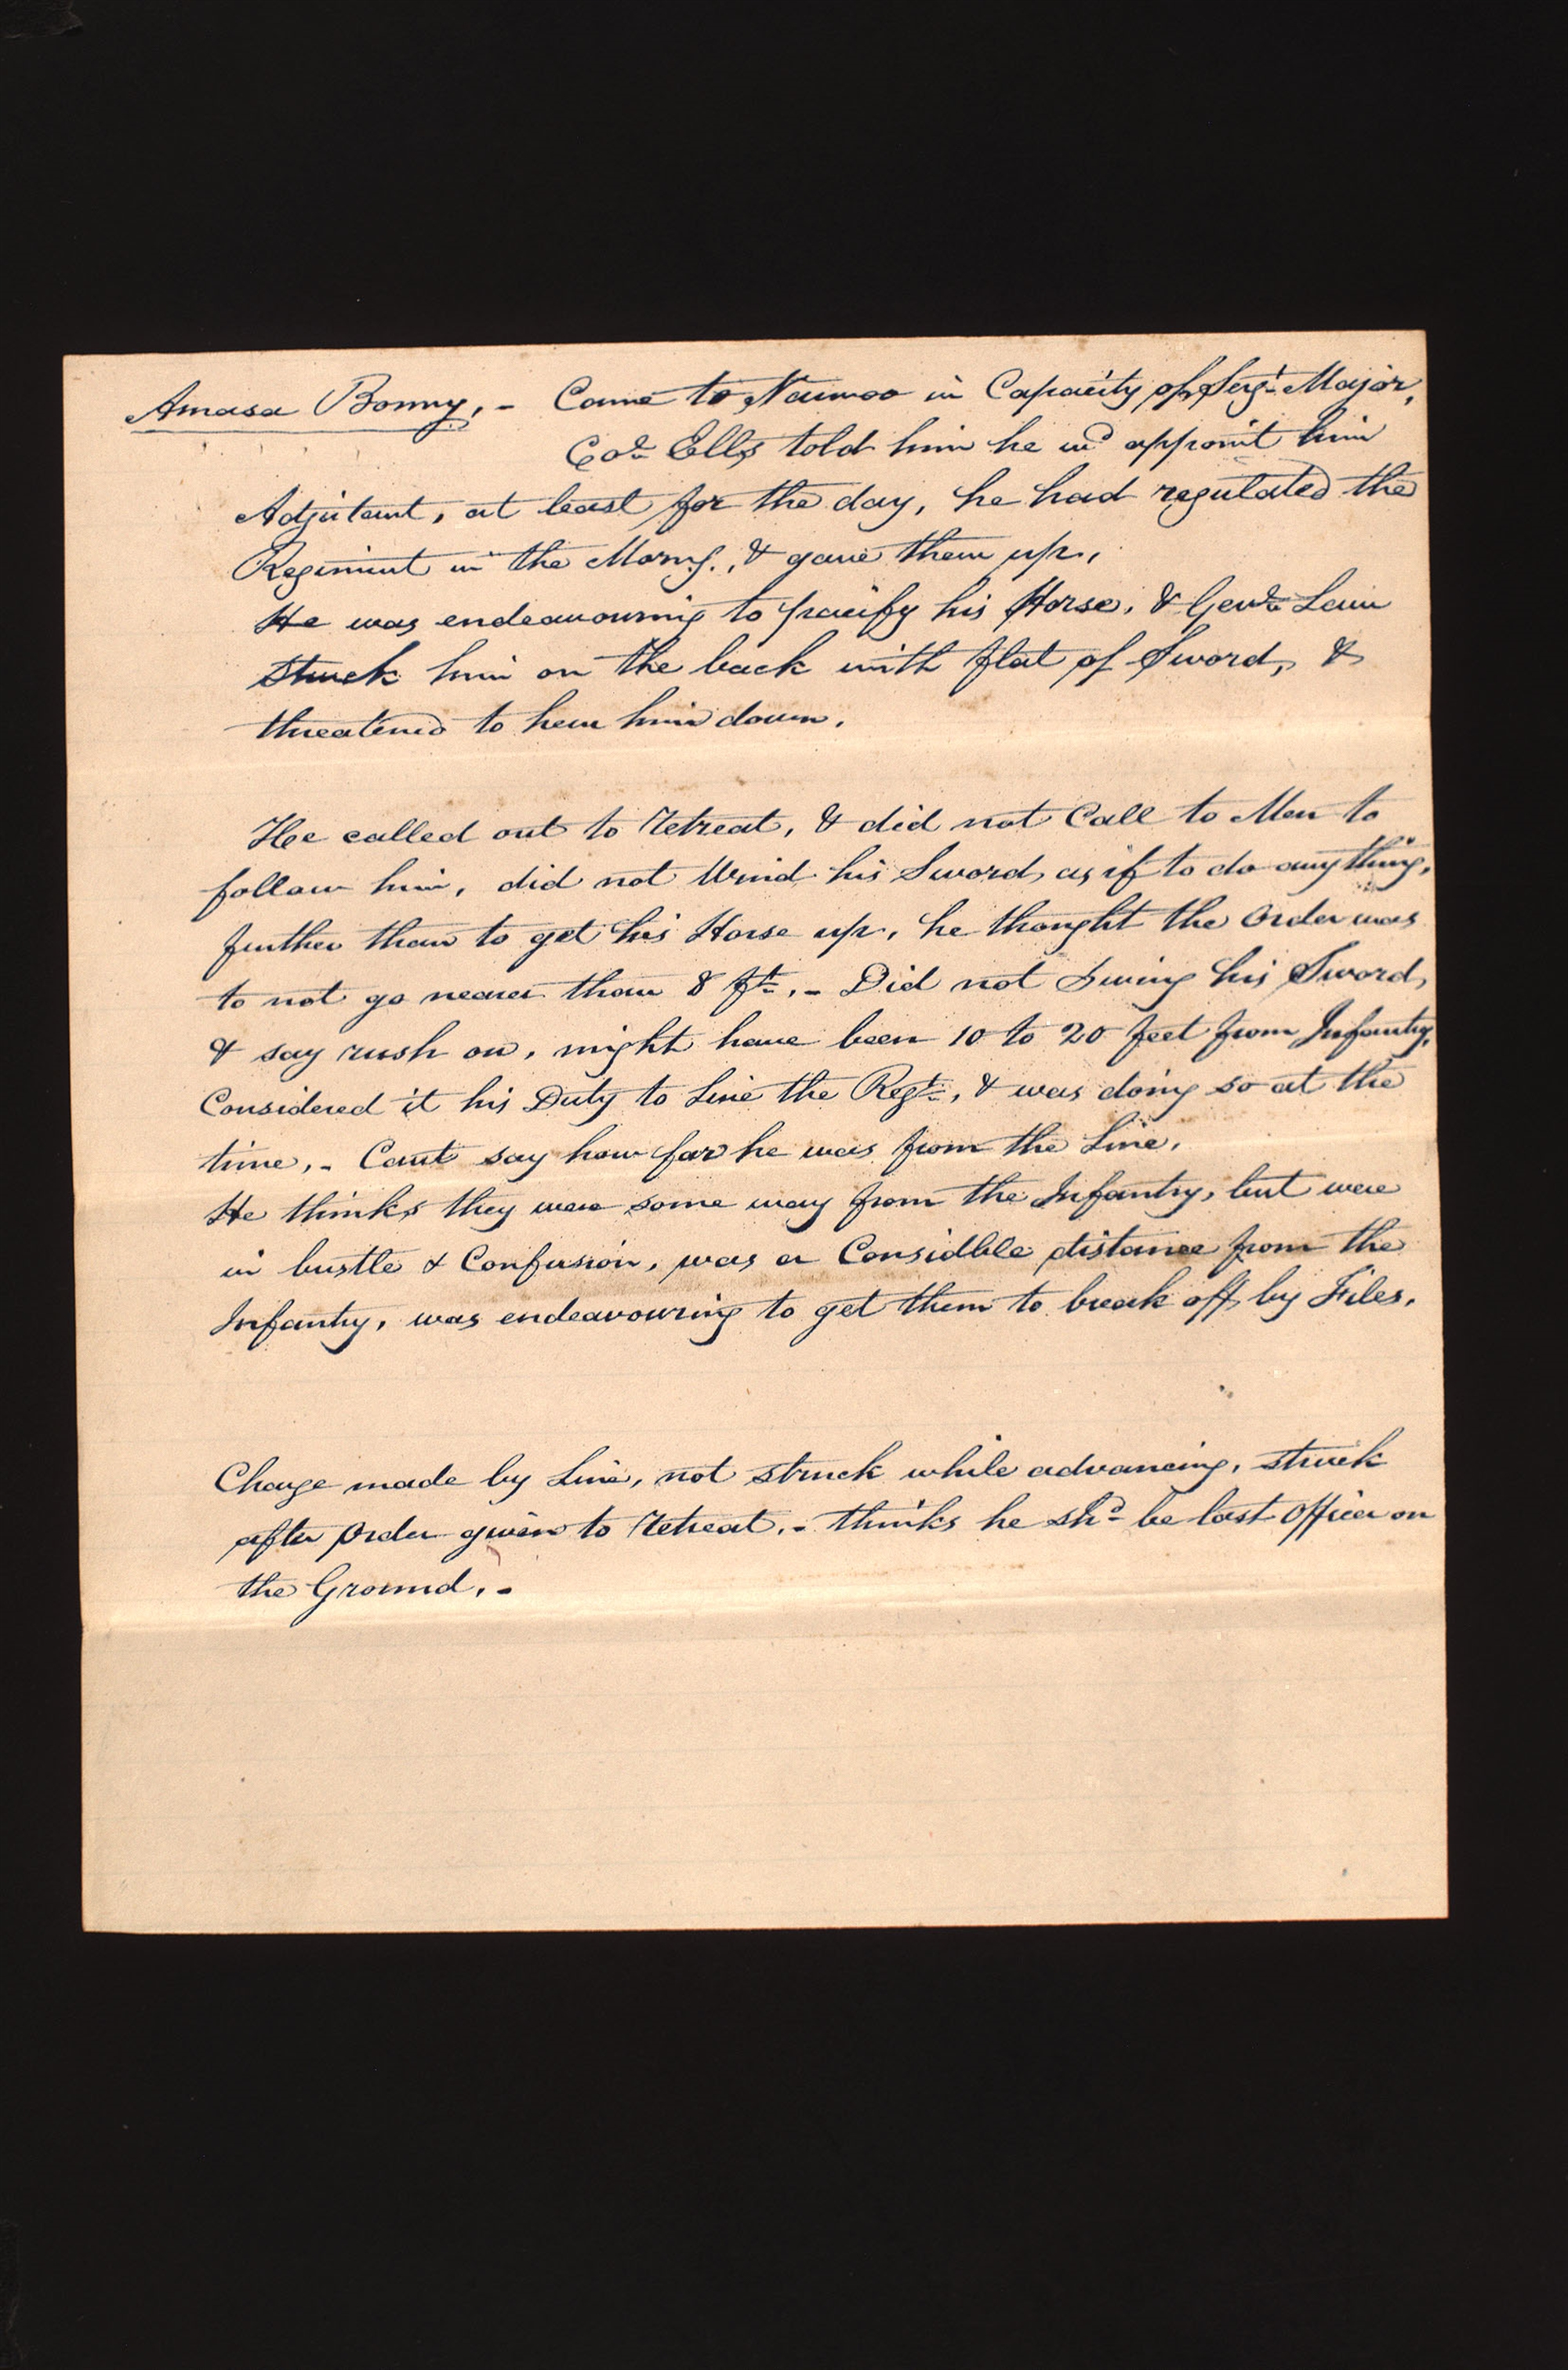 Amasa Bonny, - Came to in Capacity of Sergt. Major,
Col. Ells told him he wd appoint him
Adjutant, at least for the day, he had regulated the
Regiment in the Morng., & gave them up,
He was endeavouring to pacify his Horse, &
struck him on the back with flat of Sword, &
threatened to hew him down.
Hee called out to retreat, & did not Call to Men to
follow him, did not his Sword, as if to do any thing,
further than to get his Horse up, he thought the Order was
to not go nearer than 8 ft., - Did not Swing his Sword,
& say rush on, might have been 10 to 20 feet from Infantry,
Considered it his Duty to Line the Regt., & was doing so at the
time, - Cant say how far he was from the Line.
He thinks they were some way from the Infantry, but were
in bustle & Confusion, was a Considble distance from the
Infantry, was endeavouring to get them to break off by Files.
Charge made by Line, not struck while advancing, struck
after Order given to retreat, - thinks he shd be last Officer on
the Ground, -